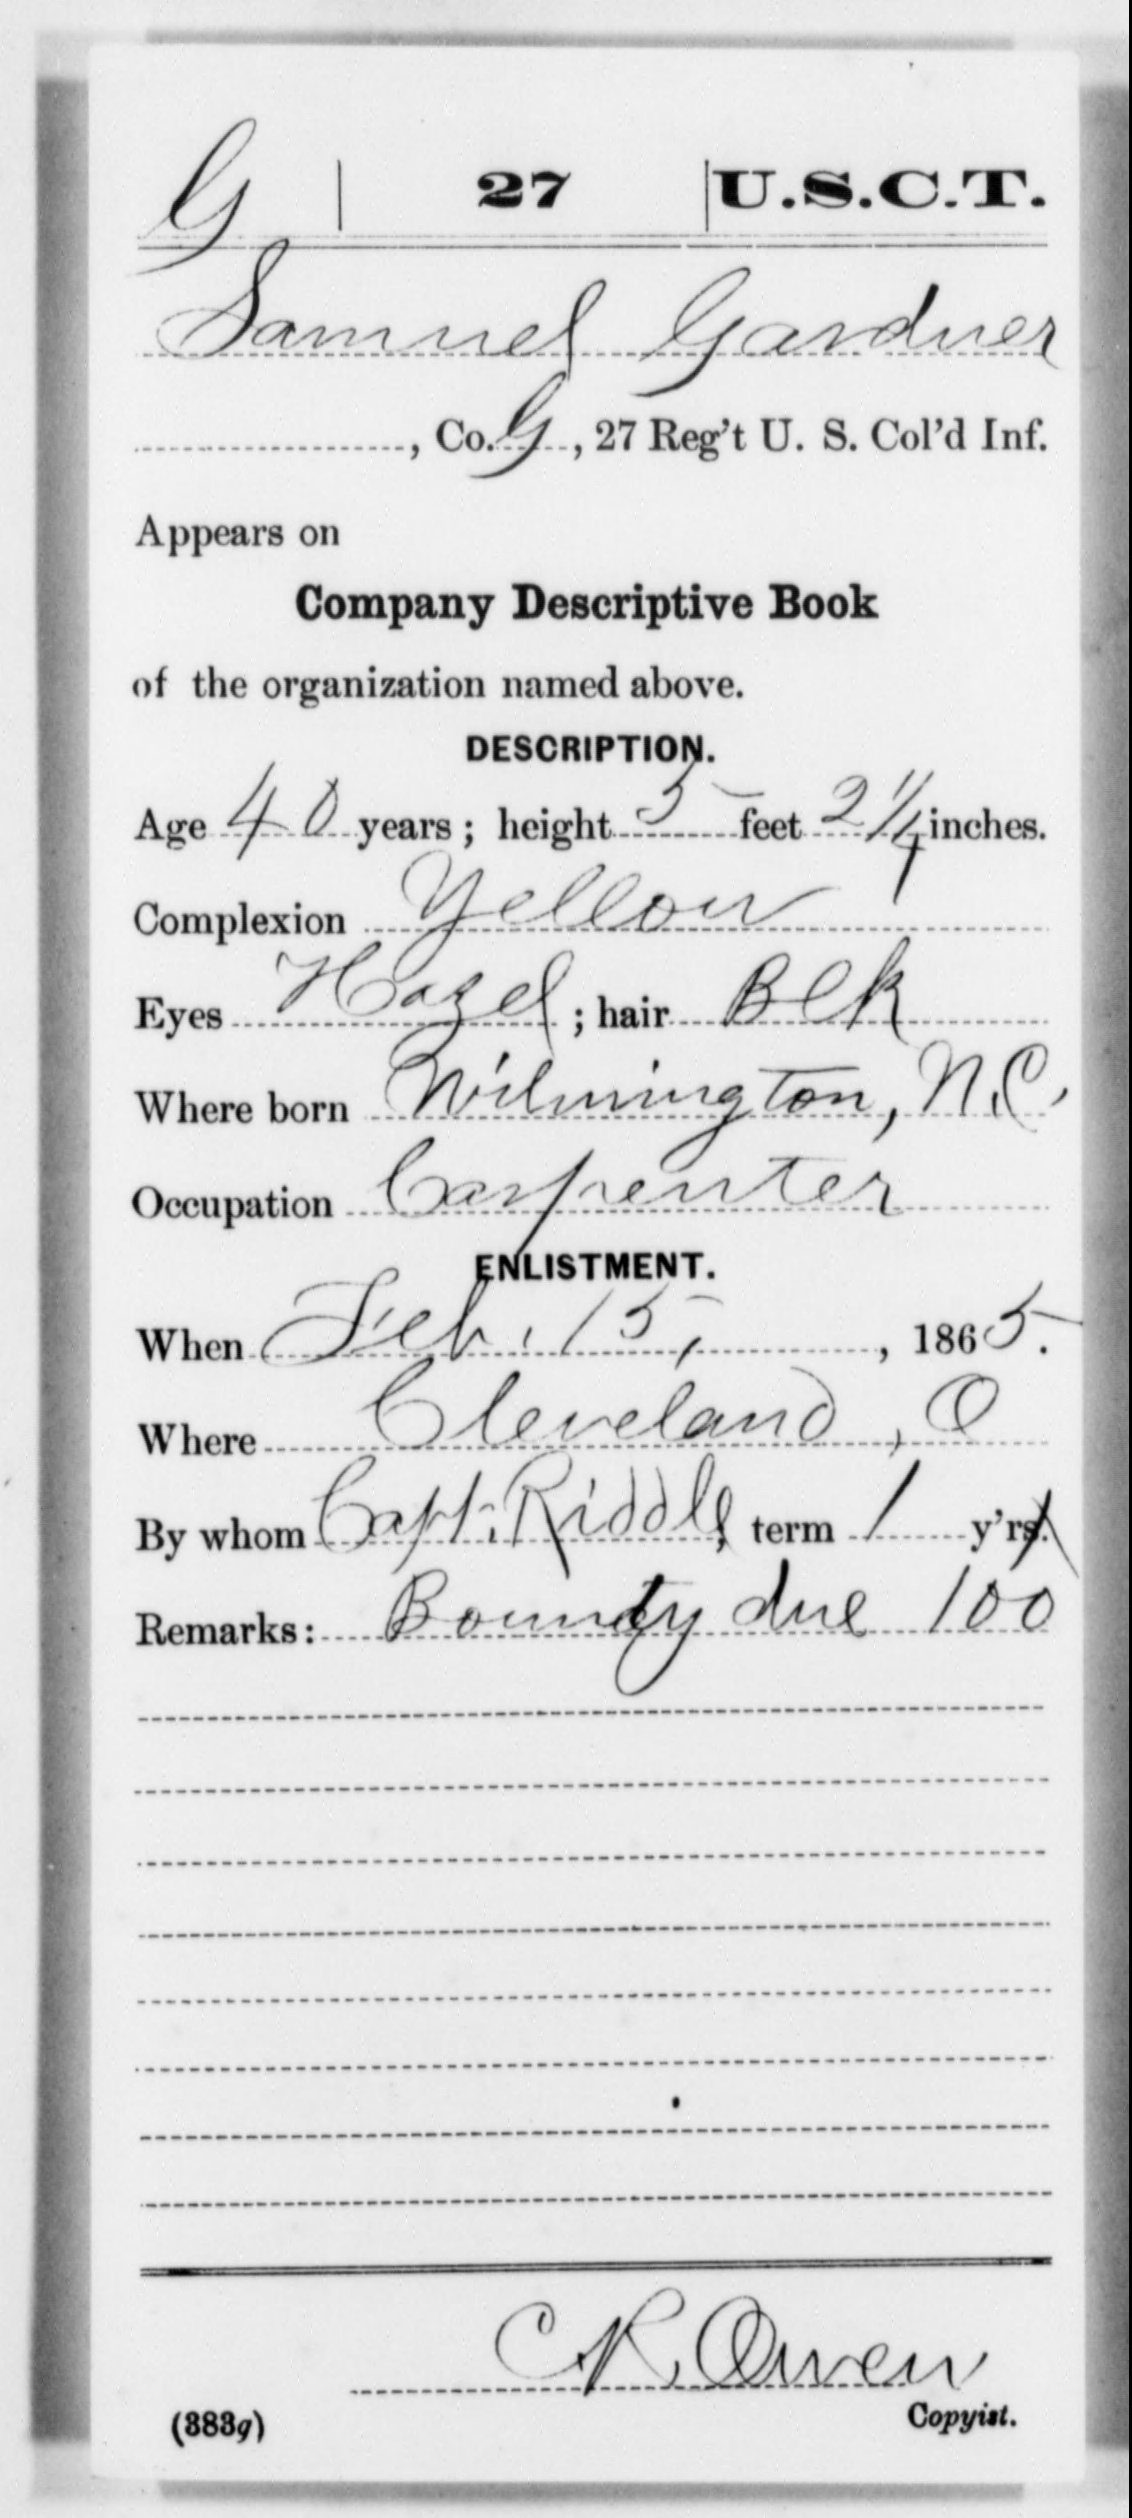 G | 27 | U.S.C.T.
Samuel Gardner
, Co. G, 27 Reg't U. S. Col'd Inf.
Appears on
Company Descriptive Book
of the organization named above.
DESCRIPTION.
Age 40 years; height 5 feet 2 1/4 inches.
Complexion Yellow
Eyes Hazel; hair Blk
Where born Wilmington, N.C.
Occupation Carpenter
ENLISTMENT.
When Feb. 15, , 1865.
Where Cleveland, O
By whom Capt. Riddle, term 1 y'rs.
Remarks: Bounty due 100
C. R. Owen
(383g) Copyist.